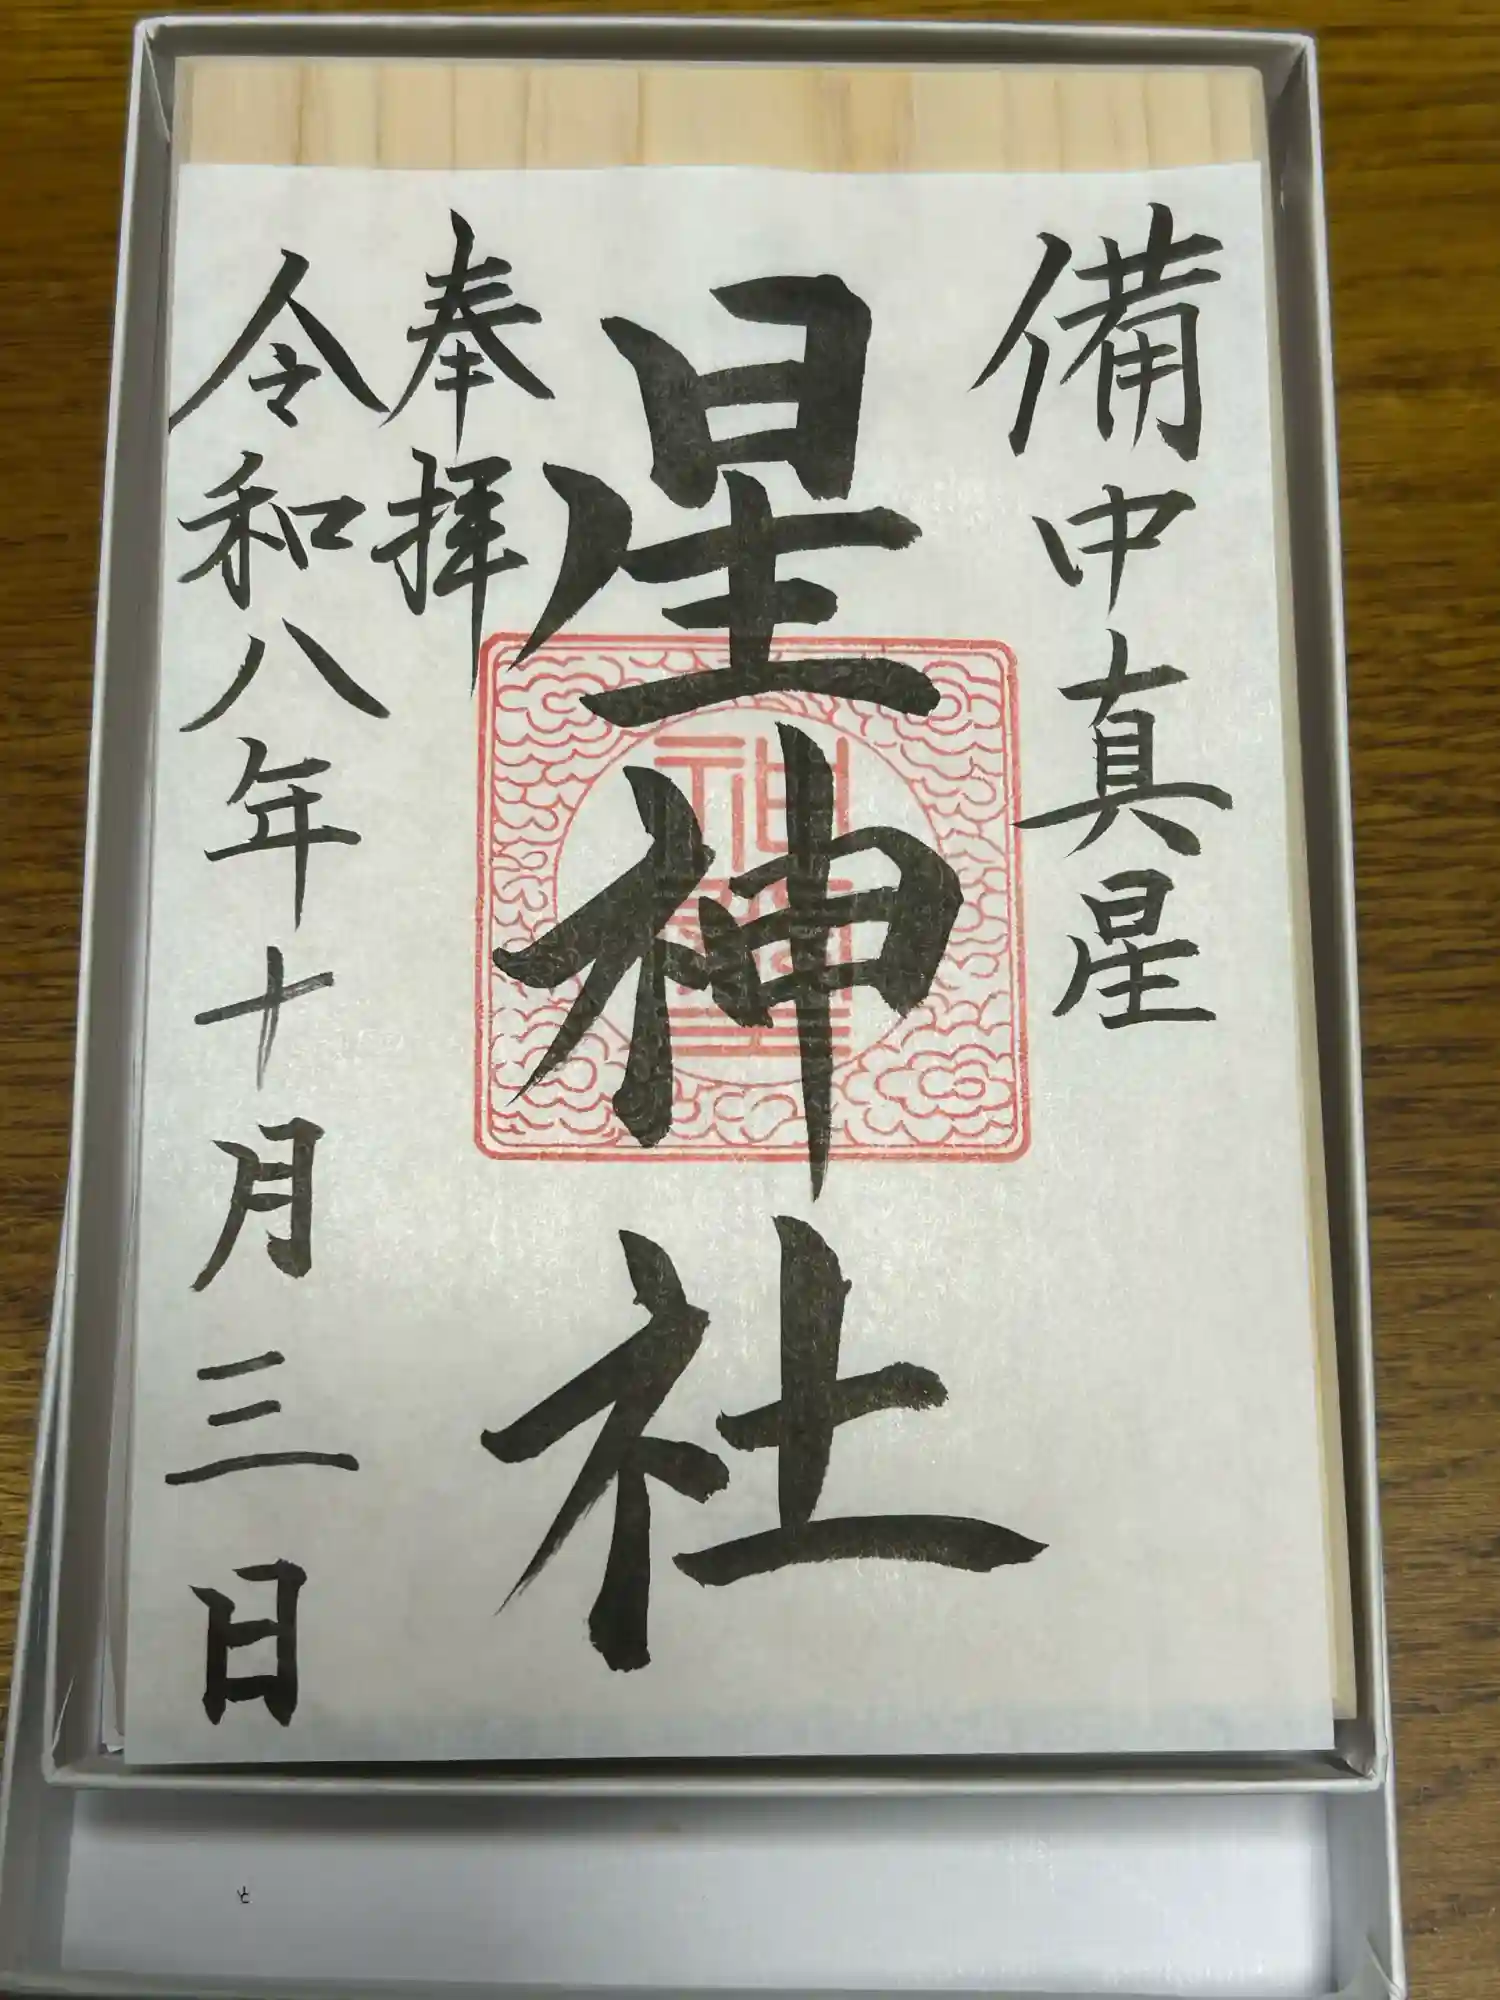 備中真星
星神社
奉拝
令和八年十月三日
と